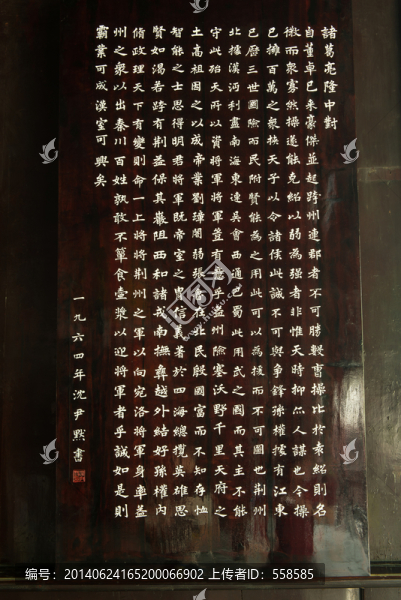 諸葛亮隆中對
自董卓已來豪傑並起跨州連郡者不可勝數曹操比於袁紹則名
微而眾寡然操遂能克紹以弱為強者非惟天時抑亦人謀也今操
已擁百萬之眾挾天子以令諸侯此誠不可與爭鋒孫權據有江東
已歷三世國險而民附賢能為之用此可以為援而不可圖也荊州
北據漢沔利盡南海東連吳會西通巴蜀此用武之國而其主不能
守此殆天所以資將軍將軍豈有意乎益州險塞沃野千里天府之
土高祖因之以成帝業劉璋闇弱張魯在北民殷國富而不知存恤
智能之士思得明君將軍既帝室之冑信義著於四海總攬英雄思
賢如渴若跨有荊益保其巖阻西和諸戎南撫彝越外結好孫權內
脩政理天下有變則命一上將將荊州之軍以向宛洛將軍身率益
州之眾以出秦川百姓孰敢不簞食壺漿以迎將軍者乎誠如是則
霸業可成漢室可興矣
一九六四年沈尹默書
編号：20140624165200066902 上传者ID：558585